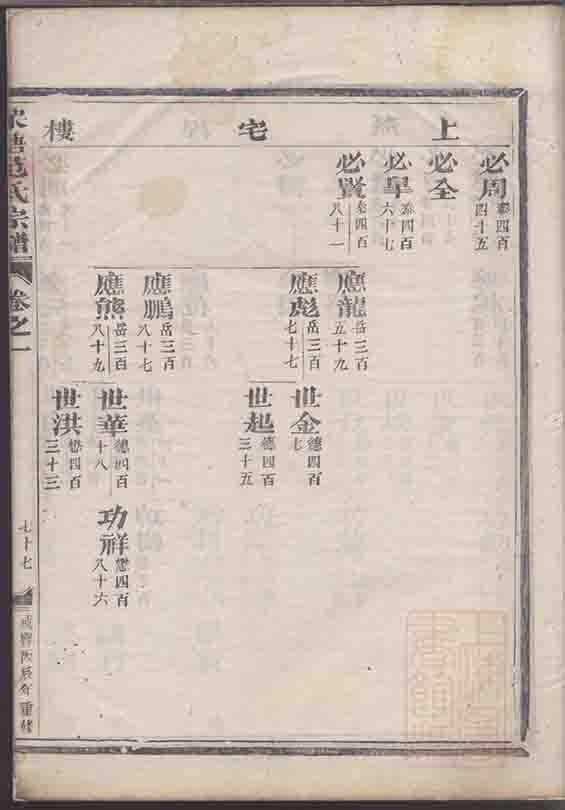 上宅樓
必周
四百
四十五
必全
必皐
四百
六十七
必賢
四百
八十一
應龍
岳三百
五十九
應彪
岳三百
七十七
應鵬
岳三百
八十七
應熊
岳三百
八十九
世金
四百
七
世起
四百
三十五
世華
四百
十八
世洪
四百
三十三
功祥
四百
八十六
塘范氏宗譜
卷之一
七十七
咸豐丙辰年重修